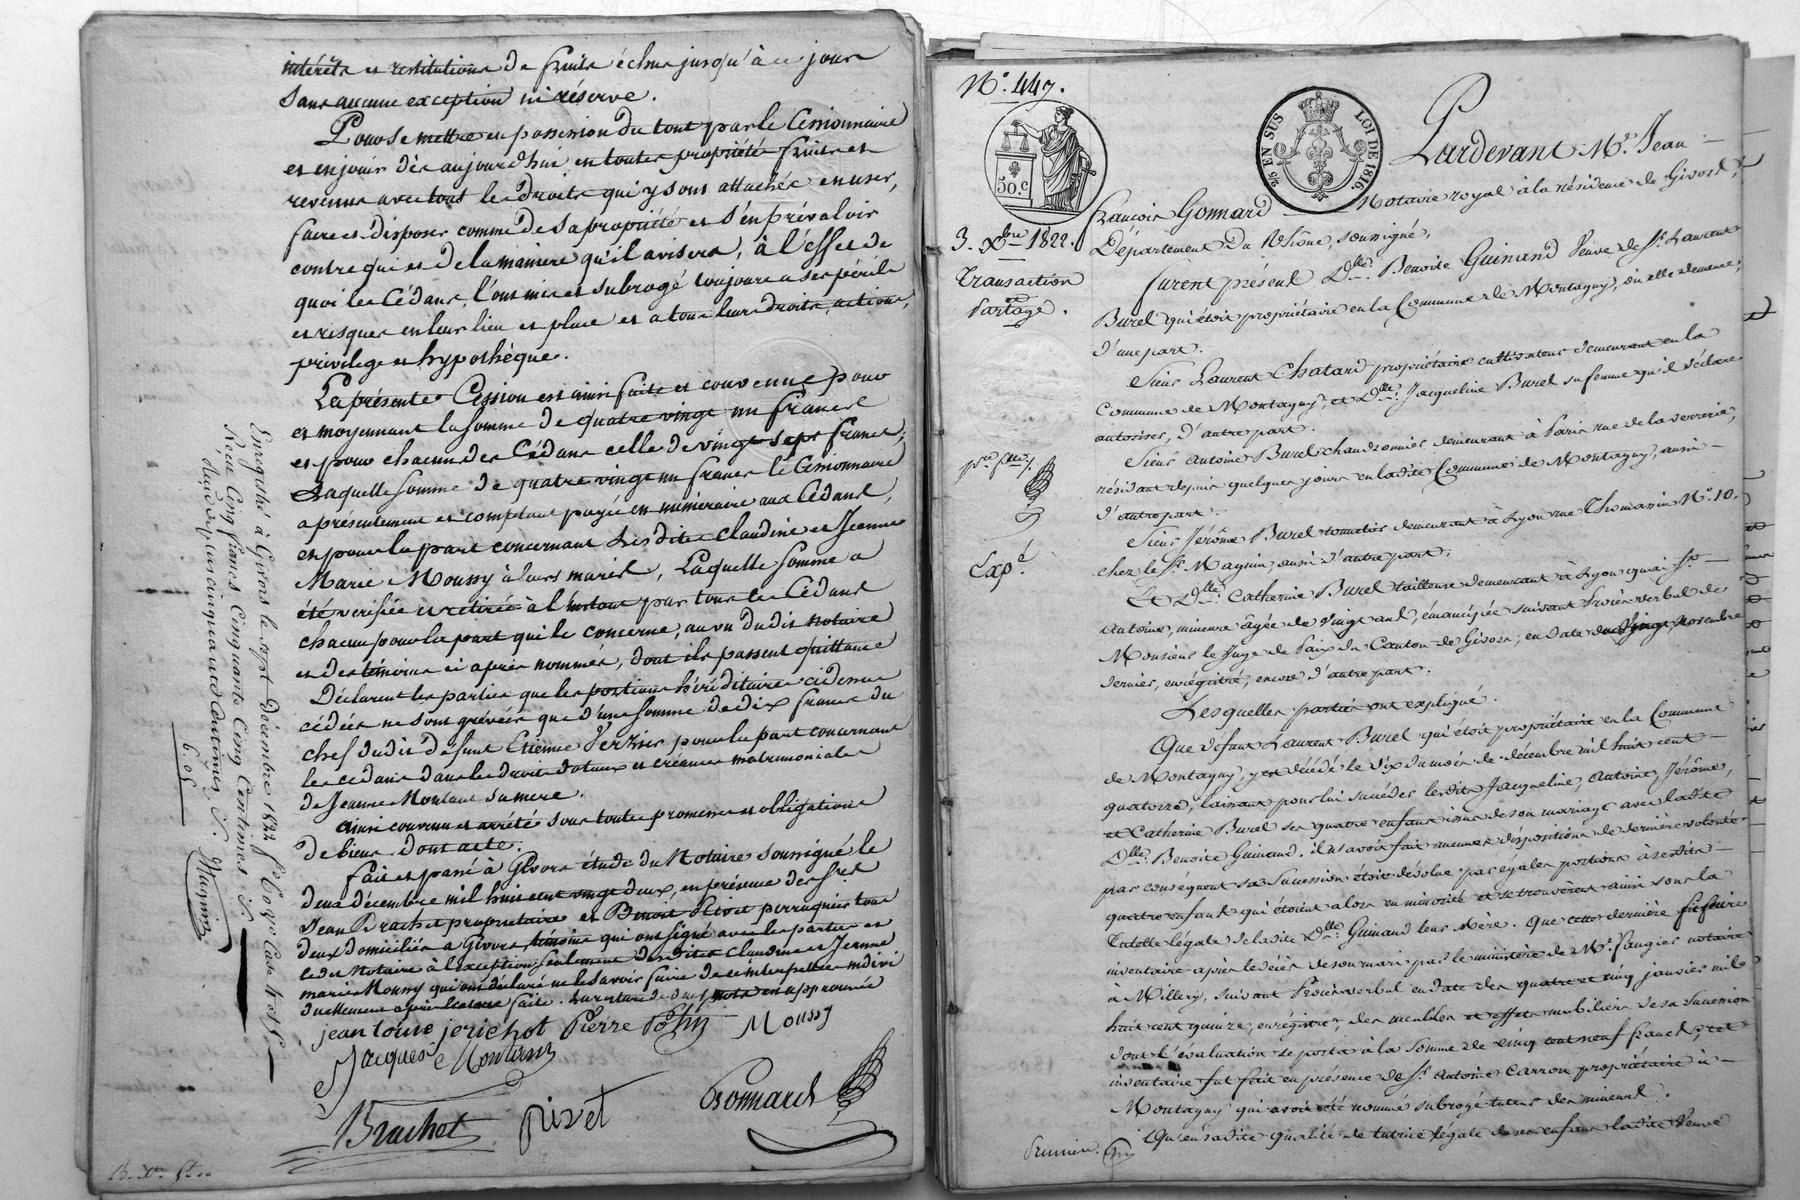 intérêts et restitutions de fruits échus jusqu'à ce jour
sans aucune exception ni réserve.
Pour se mettre en possession du tout par le Cessionnaire
et en jouir dès aujourd'hui en toute propriété fruits et
revenus avec tous les droits qui y sont attachés en user,
faire et disposer comme de sa propriété et s'en prévaloir
contre qui et de la maniere qu'il avisera, à l'effet de
quoi les Cédans, l'ont mis et subrogé toujours a ses périls
et risques en leur lieu et place et a tous leurs droits, actions,
privilege et hypothèque.
La présente Cession est ainsi faite et convenue pour
et moyennant la somme de quatre vingt un francs
et pour chacun des Cédans celle de vingt sept francs;
Laquelle somme de quatre vingt un francs le Cessionnaire
a présentement et comptant payée en numéraire aux Cédans,
et pour la part concernant les dites Claudine et Jeanne
Marie Moussy à leurs maris, Laquelle somme a
été verifiée et retirée à l'instant par tous les Cédans
chacun pour la part qui le concerne, au vu du dit notaire
et des témoins ci après nommés, dont ils passent quittance
Déclarent les parties que les portions héréditaires cidessus
cédées ne sont grévées que d'une somme de dix francs du
chef du dit défunt Etienne Verzier pour la part concernant
les cedans dans les droits dotaux et créances matrimoniales
de Jeanne Montant sa mere.
Ainsi convenu et arrêté sous toutes promesses et obligations
de biens. Dont acte.
Fait et passé à Givors étude du Notaire soussigné le
deux décembre mil huit cent vingt deux, en présence des Srs
Jean Brachet propriétaire et Benoit Rivet perruquier tous
deux domiciliés a Givors témoins qui ont signé avec les parties et
le dit Notaire à l'exception seulement des dites Claudine et Jeanne
marie Moussy qui ont déclaré ne le savoir faire de ce interpellées indivi
duellement après lecture faite.
jean louis jerichot Pierre Moussy
Jacques Montant
Brachet Rivet Gonnard
Enregistré à Givors le sept Décembre 1822
Reçu Cinq francs Cinquante Cinq Centimes
6,05
No. 447.
50.c
25 EN SUS
LOI DE 1816.
3. Xbre 1822.
Transaction
et
Partage.
Expé
Pardevant Me. Jean
François Gonnard Notaire royal à la résidence de Givors,
Département du Rhône, soussigné,
furent présens Dlle. Benoite Guinand Veuve de Sr. Laurent
Burel qui étoit propriétaire en la Commune de Montagny, où elle demeure,
d'une part.
Sieur Laurent Chatard propriétaire cultivateur demeurant en la
Commune de Montagny, et Dlle. Jacqueline Burel sa femme qu'il déclare
autoriser, d'autre part.
Sieur Antoine Burel chaudronnier demeurant à Paris rue de la verrerie,
résidant depuis quelques jours en ladite Commune de Montagny, aussi
d'autre part.
Sieur Jérôme Burel tonnelier demeurant à Lyon rue Thomassin No. 10,
chez le Sr. Magnin, aussi d'autre part.
Et Dlle. Catherine Burel tailleuse demeurant à Lyon quai St
Antoine, mineure âgée de vingt ans, émancipée suivant Procès verbal de
Monsieur le Juge de Paix du Canton de Givors, en date du vingt novembre
dernier, enrégistré, encore d'autre part.
Lesquelles parties ont expliqué.
Que défunt Laurent Burel qui étoit propriétaire en la Commune
de Montagny, y est décédé le dix du mois de décembre mil huit cent
quatorze, laissant pour lui succéder lesdits Jacqueline, Antoine, Jérôme,
et Catherine Burel ses quatre enfans issus de son mariage avec ladite
Dlle. Benoite Guinand. il n'avoit fait aucunes dispositions de dernière volonté
par conséquent sa Succession étoit dévolue par égales portions à sesdits
quatre enfans qui étoient alors en minorité et se trouvèrent ainsi sous la
Tutelle légale de ladite Dlle. Guinand leur mère. Que cette dernière fit faire
inventaire après le décès de son mari par le ministère de Me. Faugier notaire
à Millery, suivant Procès verbal en date des quatre et cinq janvier mil
huit cent quinze, enrégistré, des meubles et effets mobiliers de sa Succession
dont l'évaluation se porta à la Somme de cinq cent neuf francs; cet
inventaire fut fait en présence de Sr. Antoine Carron propriétaire à
Montagny qui avoit été nommé subrogé tuteur des mineurs.
Qu'en sadite qualité de tutrice légale de ses enfans ladite Veuve